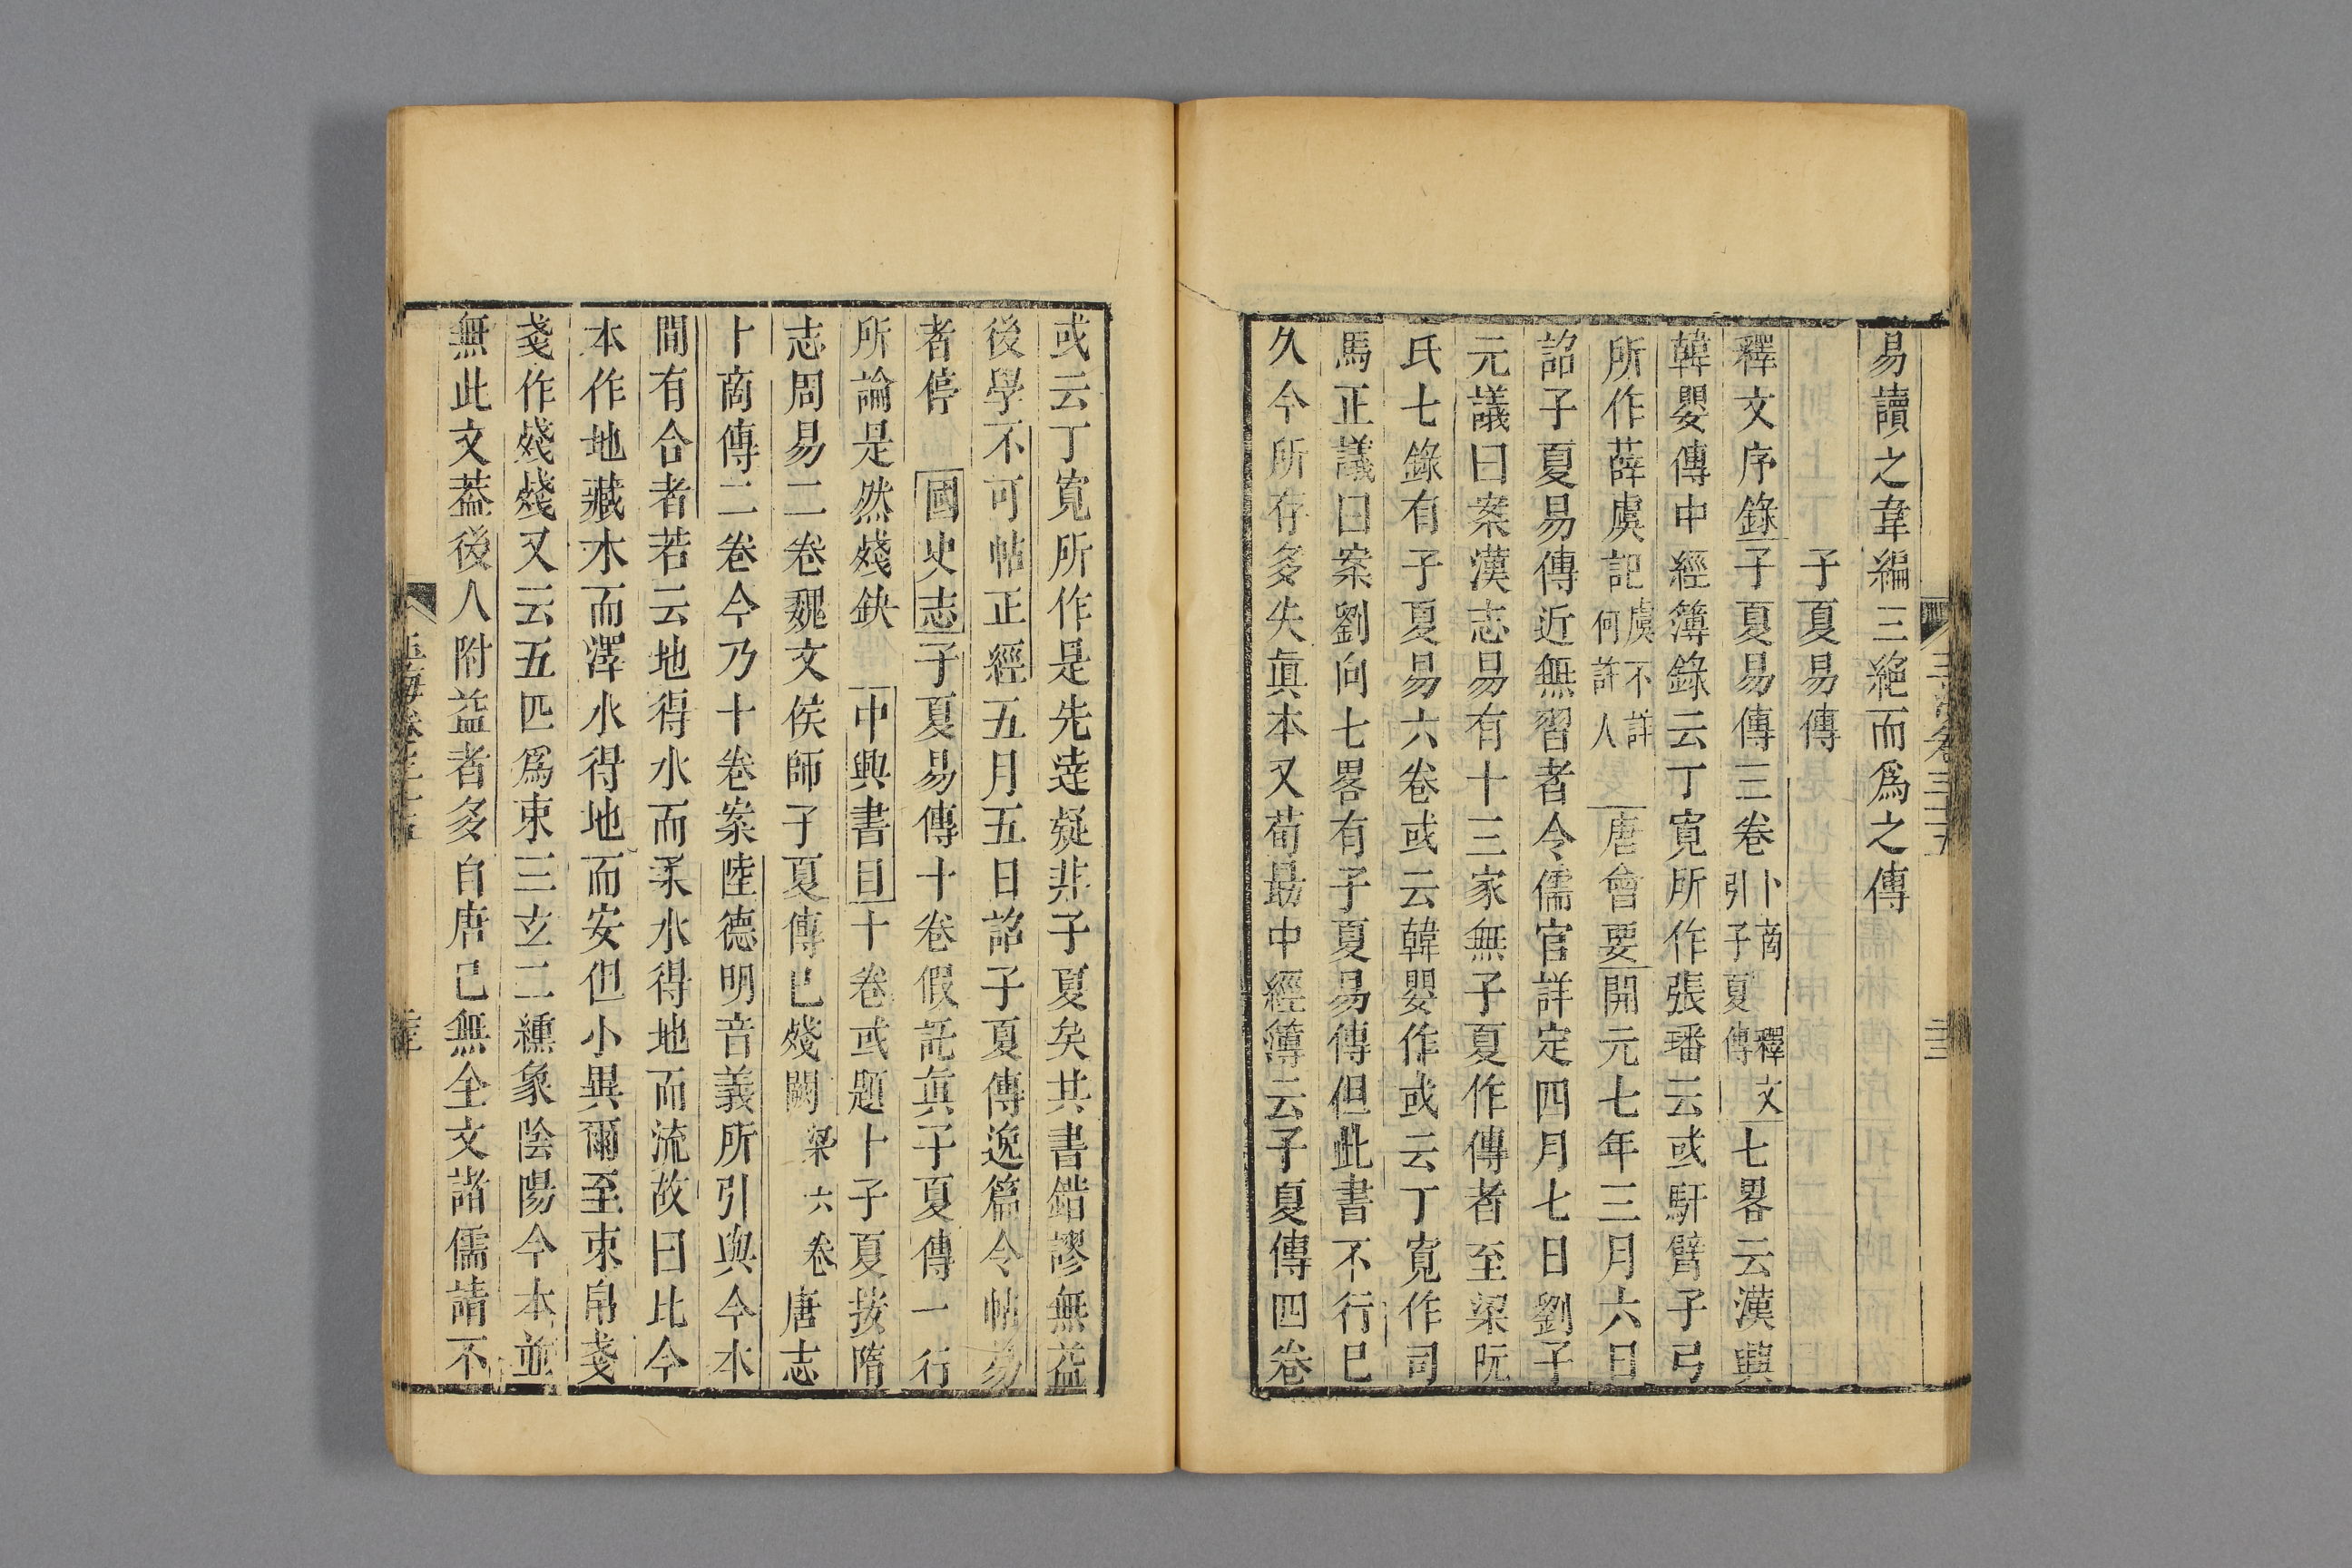 易讀之韋編三絕而爲之傳
子夏易傳
釋文序錄子夏易傳三卷卜商釋文引子夏傳七畧云漢興
韓嬰傳中經簿錄云丁寛所作張璠云或馯臂子弓
所作薛虞記虞不詳何許人唐會要開元七年三月六日
詔子夏易傳近無習者令儒官詳定四月七日劉子
元議曰案漢志易有十三家無子夏作傳者至梁阮
氏七錄有子夏易六卷或云韓嬰作或云丁寛作司
馬正議曰案劉向七畧有子夏易傳但此書不行巳
久今所存多失眞本又荀勗中經簿云子夏傳四卷
或云丁寛所作是先達疑非子夏矣其書錯謬無益
後學不可帖正經五月五日詔子夏傳逸篇令帖易
者停國史志子夏易傳十卷假託眞子夏傳一行
所論是然殘缺中興書目十卷或題卜子夏按隋
志周易二卷魏文侯師子夏傳巳殘闕梁六卷唐志
卜商傳二卷今乃十卷案陸德明音義所引與今本
間有合者若云地得水而柔水得地而流故曰比今
本作地藏水而澤水得地而安但小異爾至束帛戔
戔作殘殘又云五匹爲束三玄二纁象陰陽今本並
無此文葢後人附益者多自唐巳無全文諸儒請不